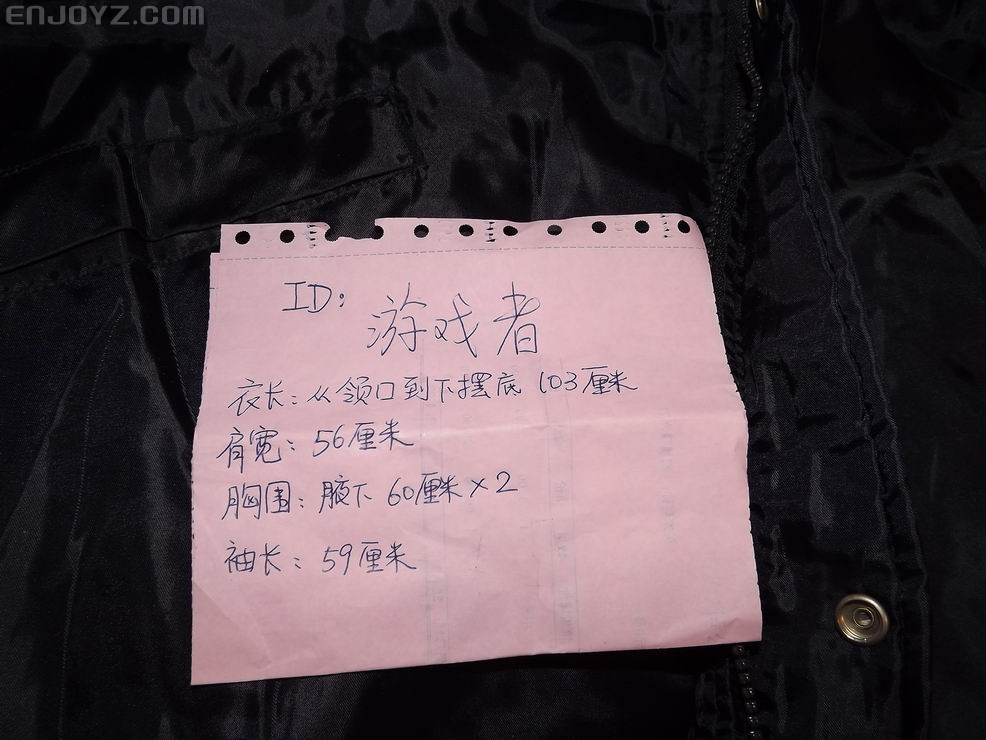 ENJOYZ.COM
ID: 游戏者
衣长: 从领口到下摆底 103厘米
肩宽: 56厘米
胸围: 腋下 60厘米×2
袖长: 59厘米